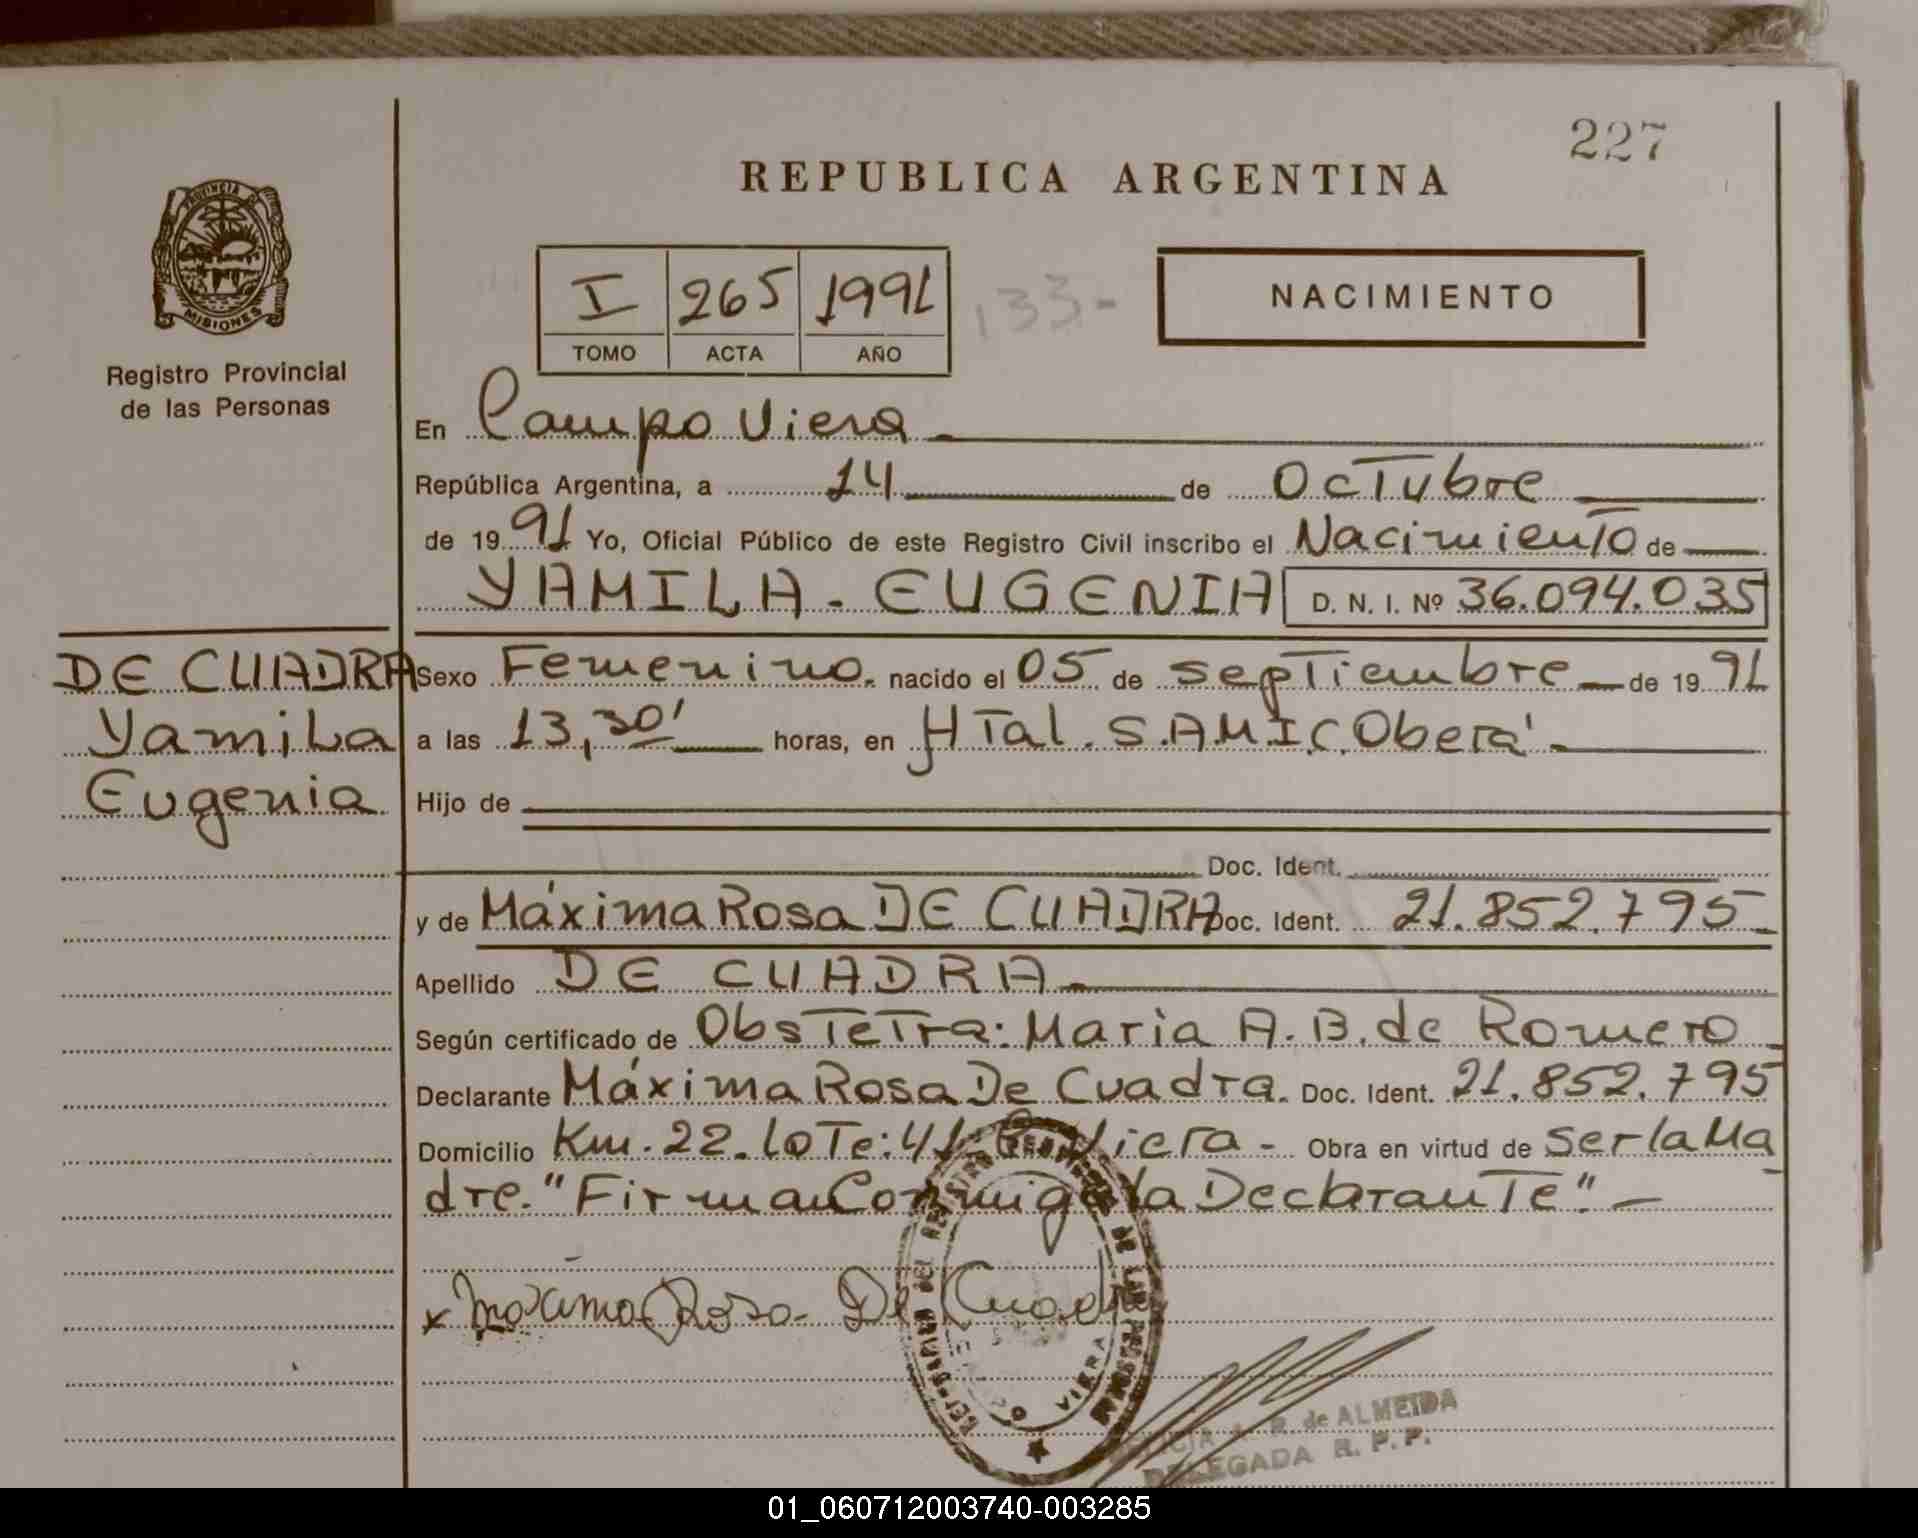 227
REPUBLICA ARGENTINA
PROVINCIA DE
MISIONES
Registro Provincial
de las Personas
I 265 1991
TOMO ACTA AÑO
133-
NACIMIENTO
En Campo Viera
República Argentina, a 14 de Octubre
de 1991 Yo, Oficial Público de este Registro Civil inscribo el Nacimiento de
YAMILA - EUGENIA D. N. I. Nº 36.094.035
DE CUADRA
Yamila
Eugenia
Sexo Femenino. nacido el 05 de septiembre de 1991
a las 13,30' horas, en HTal. S.A.M.I.C. Oberá
Hijo de
Doc. Ident.
y de Máxima Rosa DE CUADRA Doc. Ident. 21.852.795
Apellido DE CUADRA
Según certificado de Obstetra: Maria A. B. de Romero
Declarante Máxima Rosa De Cuadra. Doc. Ident. 21.852.795
Domicilio Km. 22. Lote: 41 Viera - Obra en virtud de ser la Ma
dre. "Firman Conmigo la Declarante" -
x Maxima Rosa De Cuadra
DEL REGISTRO PROVINCIAL DE LAS PERSONAS
VIERA
R. de ALMEIDA
DELEGADA R. P. P.
01_060712003740-003285